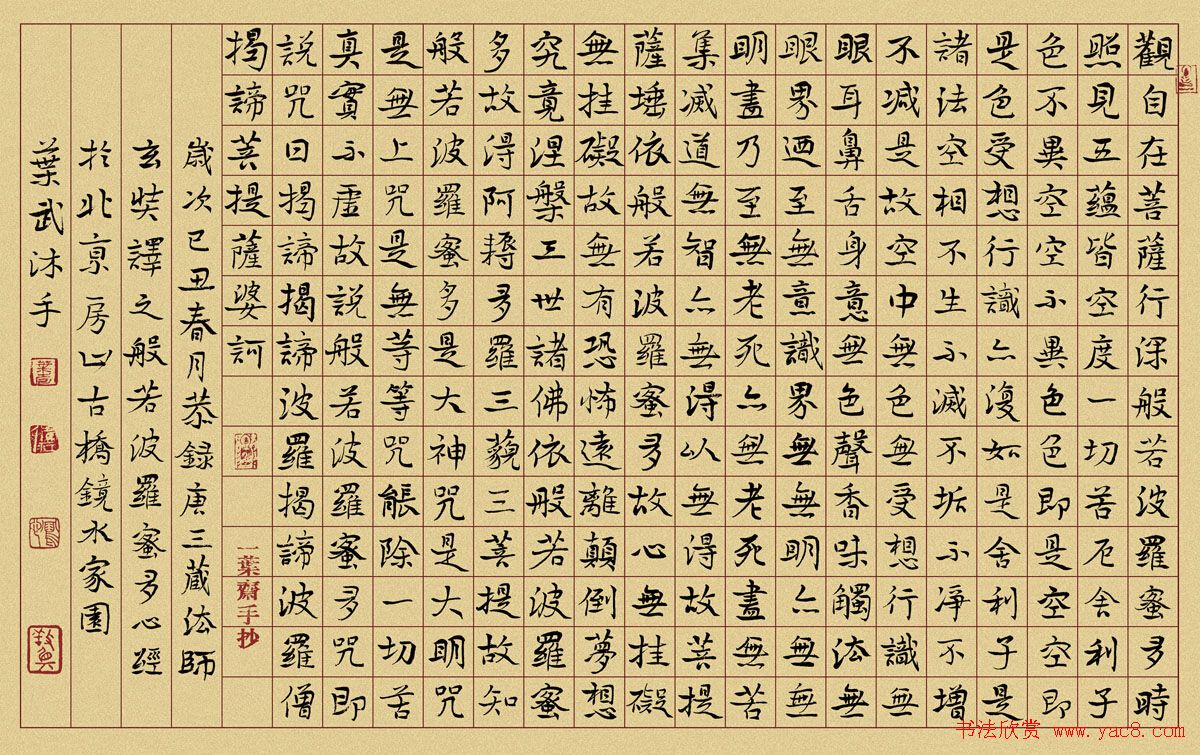 觀自在菩薩行深般若波羅蜜多時
照見五蘊皆空度一切苦厄舍利子
色不異空空不異色色即是空空即
是色受想行識亦復如是舍利子是
諸法空相不生不滅不垢不淨不增
不減是故空中無色無受想行識無
眼耳鼻舌身意無色聲香味觸法無
眼界迺至無意識界無無明亦無無
明盡乃至無老死亦無老死盡無苦
集滅道無智亦無得以無得故菩提
薩埵依般若波羅蜜多故心無挂礙
無挂礙故無有恐怖遠離顛倒夢想
究竟涅槃三世諸佛依般若波羅蜜
多故得阿耨多羅三藐三菩提故知
般若波羅蜜多是大神咒是大明咒
是無上咒是無等等咒能除一切苦
真實不虛故說般若波羅蜜多咒即
說咒曰揭諦揭諦波羅揭諦波羅僧
揭諦菩提薩婆訶
一葉齋手抄
歲次己丑春月恭録唐三藏法師
玄奘譯之般若波羅蜜多心經
於北京房山古橋鏡水家園
葉武沐手
书法欣赏 www.yac8.com